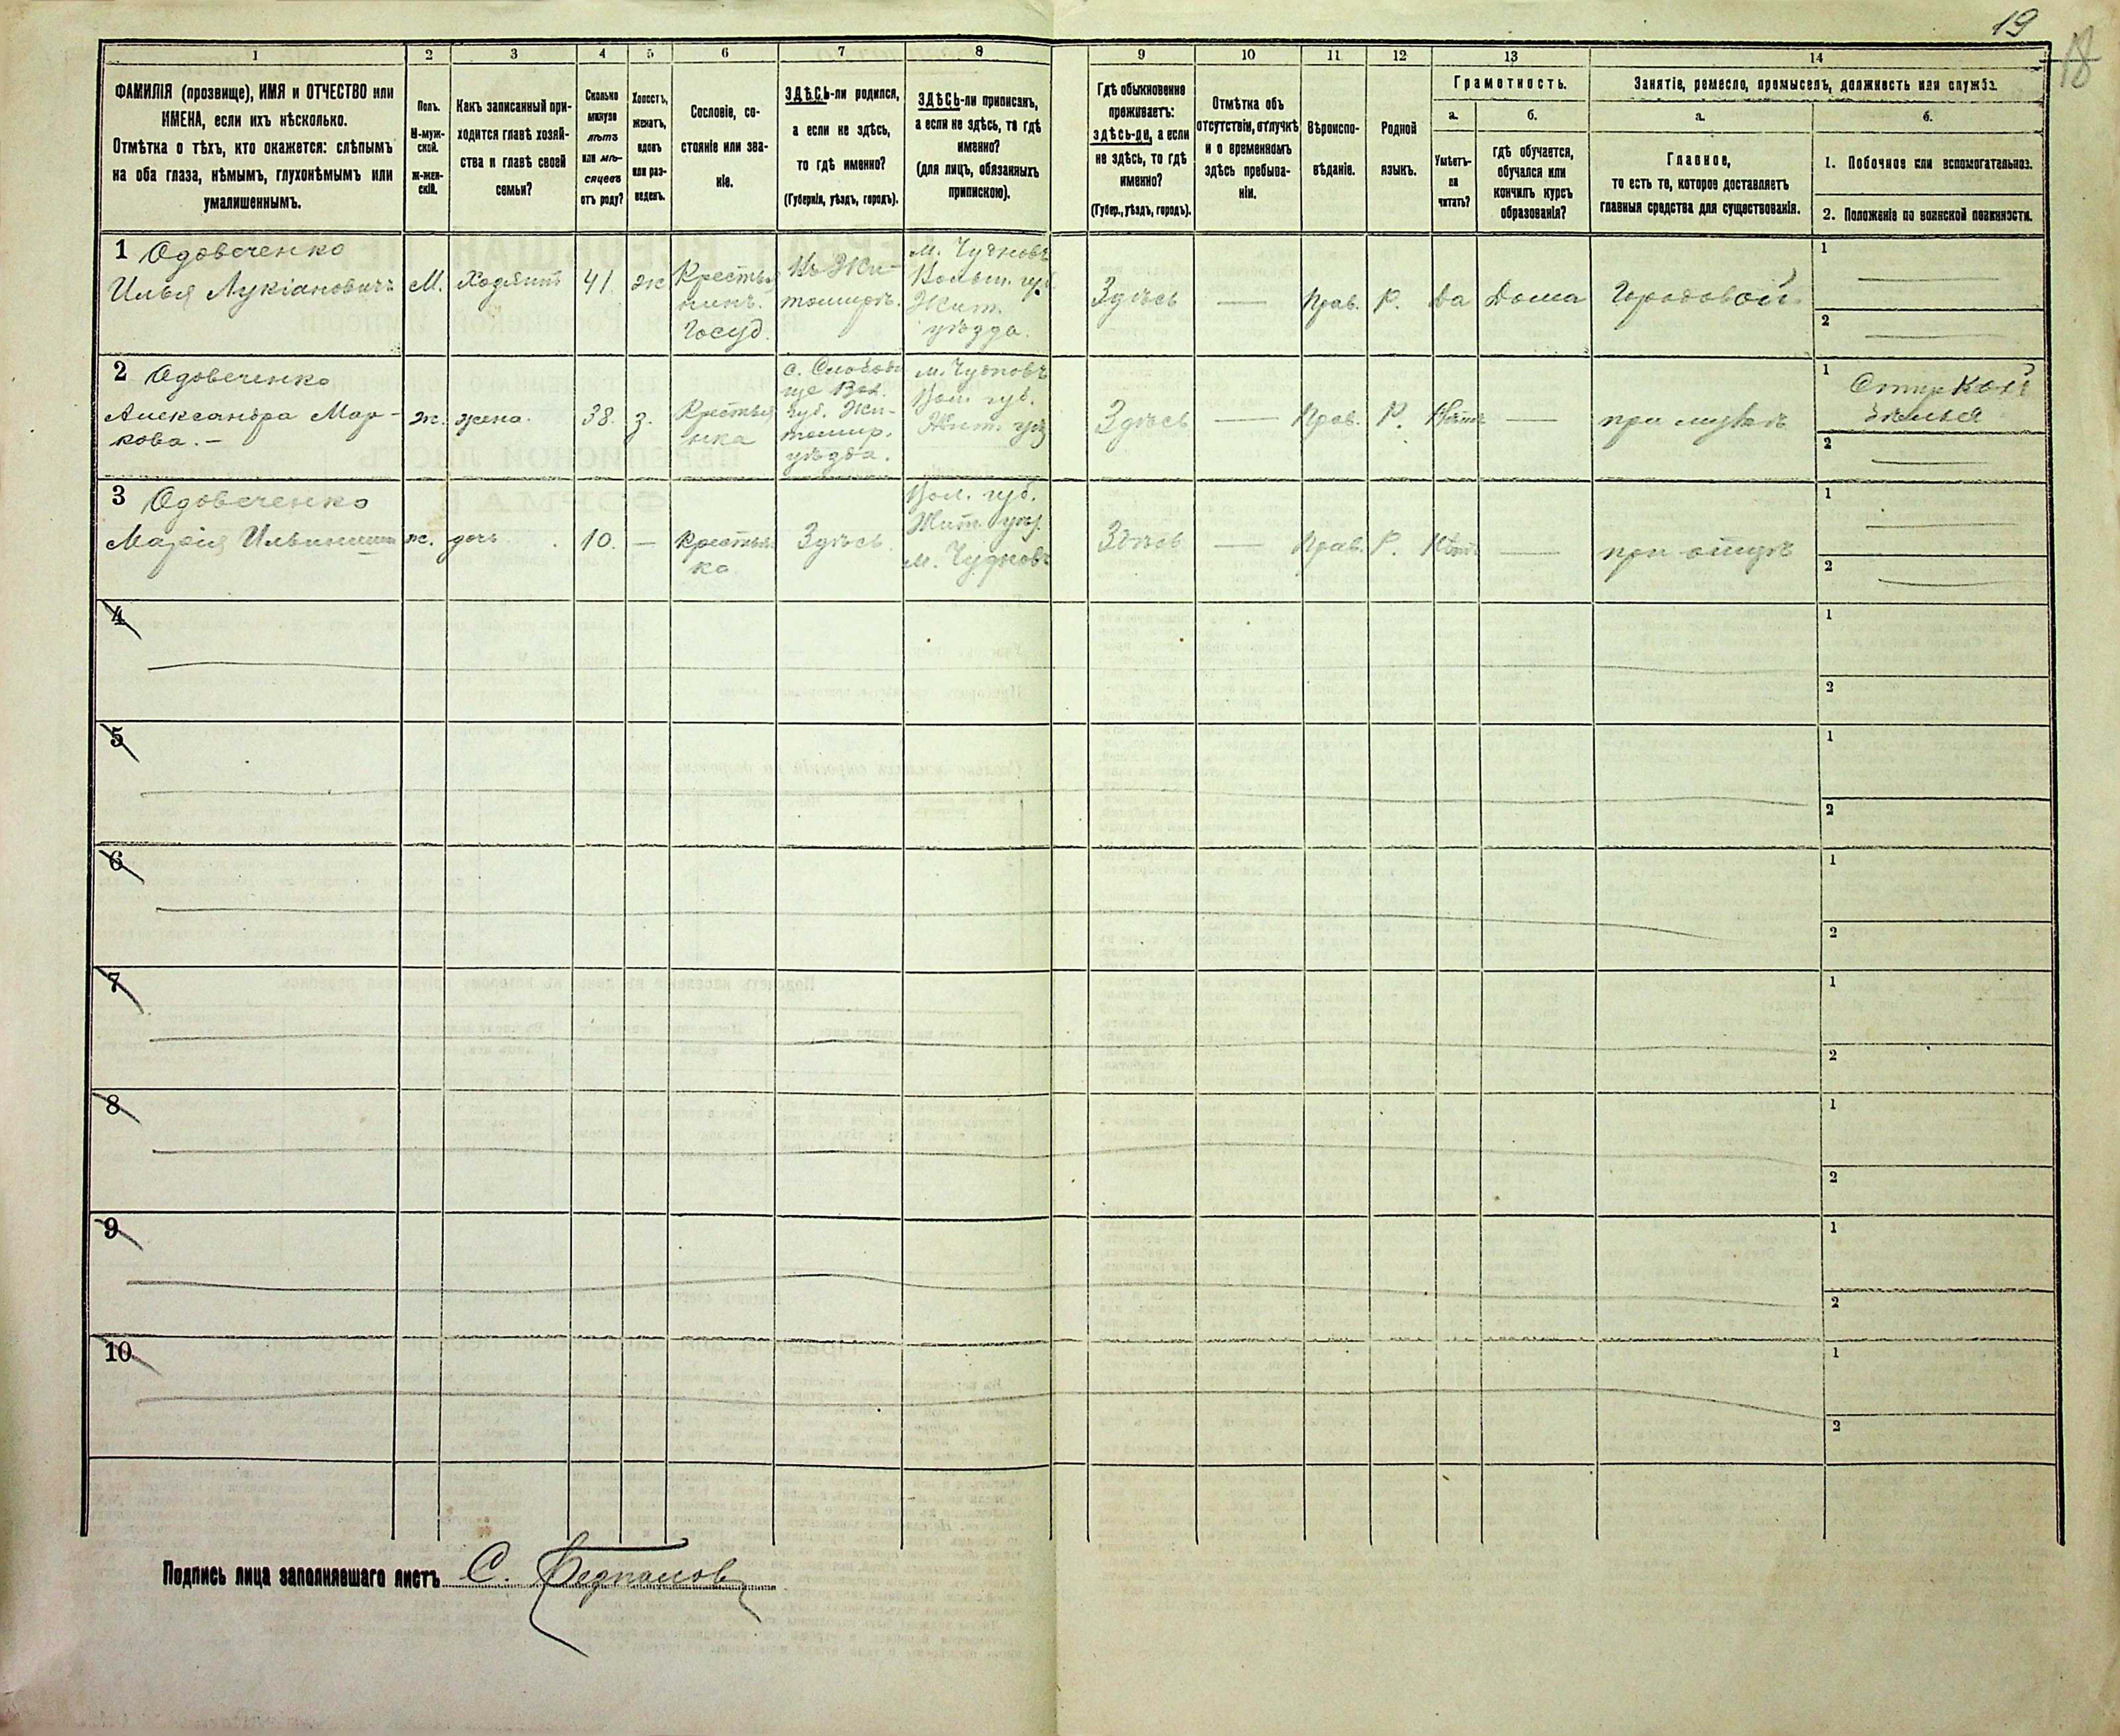 19
18
1
2
3
4
5
6
7
8
9
10
11
12
13
14
ФАМИЛІЯ (прозвище), ИМЯ и ОТЧЕСТВО или
ИМЕНА, если ихъ нѣсколько.
Отмѣтка о тѣхъ, кто окажется: слѣпымъ
на оба глаза, нѣмымъ, глухонѣмымъ или
умалишеннымъ.
Полъ.
М-муж-
ской.
Ж-жен-
скій.
Какъ записанный при-
ходится главѣ хозяй-
ства и главѣ своей
семьи?
Сколько
минуло
лѣтъ
или мѣ-
сяцевъ
отъ роду?
Холостъ,
женатъ,
вдовъ
или раз-
веденъ.
Сословіе, со-
стояніе или зва-
ніе.
ЗДѢСЬ-ли родился,
а если не здѣсь,
то гдѣ именно?
(Губернія, уѣздъ, городъ).
ЗДѢСЬ-ли приписанъ,
а если не здѣсь, то гдѣ
именно?
(для лицъ, обязанныхъ
припискою).
Гдѣ обыкновенно
проживаетъ:
здѣсь-ли, а если
не здѣсь, то гдѣ
именно?
(Губер., уѣздъ, городъ).
Отмѣтка объ
отсутствіи, отлучкѣ
и о временномъ
здѣсь пребыва-
ніи.
Вѣроиспо-
вѣданіе.
Родной
языкъ.
Грамотность.
а.
Умѣетъ-
ли
читать?
б.
гдѣ обучается,
обучался или
кончилъ курсъ
образованія?
Занятіе, ремесло, промыселъ, должность или служба.
а.
Главное,
то есть то, которое доставляетъ
главныя средства для существованія.
б.
1. Побочное или вспомогательное.
2. Положеніе по воинской повинности.
1 Одовеченко
Илья Лукіановичъ
М.
Хозяинъ
41
ж
Крестья
нинъ.
Госуд.
Въ Жи-
томирѣ.
м. Чудновъ
Волын. губ.
Жит.
уѣзда.
Здѣсь
—
Прав.
Р.
Да
Дома
Городовой
1 —
2 —
2 Одовеченко
Александра Мар-
кова. —
ж.
жена.
38.
з.
Крестья
нка
с. Слободы
ще Вол.
Губ. Жи-
томир.
уѣзда.
м. Чудновъ
Вол. губ.
Жит. уѣз
Здѣсь
—
Прав.
Р.
Нѣтъ
—
при мужѣ
1 Стиркой
бѣлья
2 —
3 Одовеченко
Марія Ильинишна
ж.
дочь.
10.
—
крестьян
ка
Здѣсь
Вол. губ.
Жит. уѣз.
м. Чудновъ
Здѣсь
—
Прав.
Р.
Нѣтъ
—
при отцѣ
1 —
2 —
4
1
2
5
1
2
6
1
2
7
1
2
8
1
2
9
1
2
10
1
2
Подпись лица заполнявшаго листъ С.